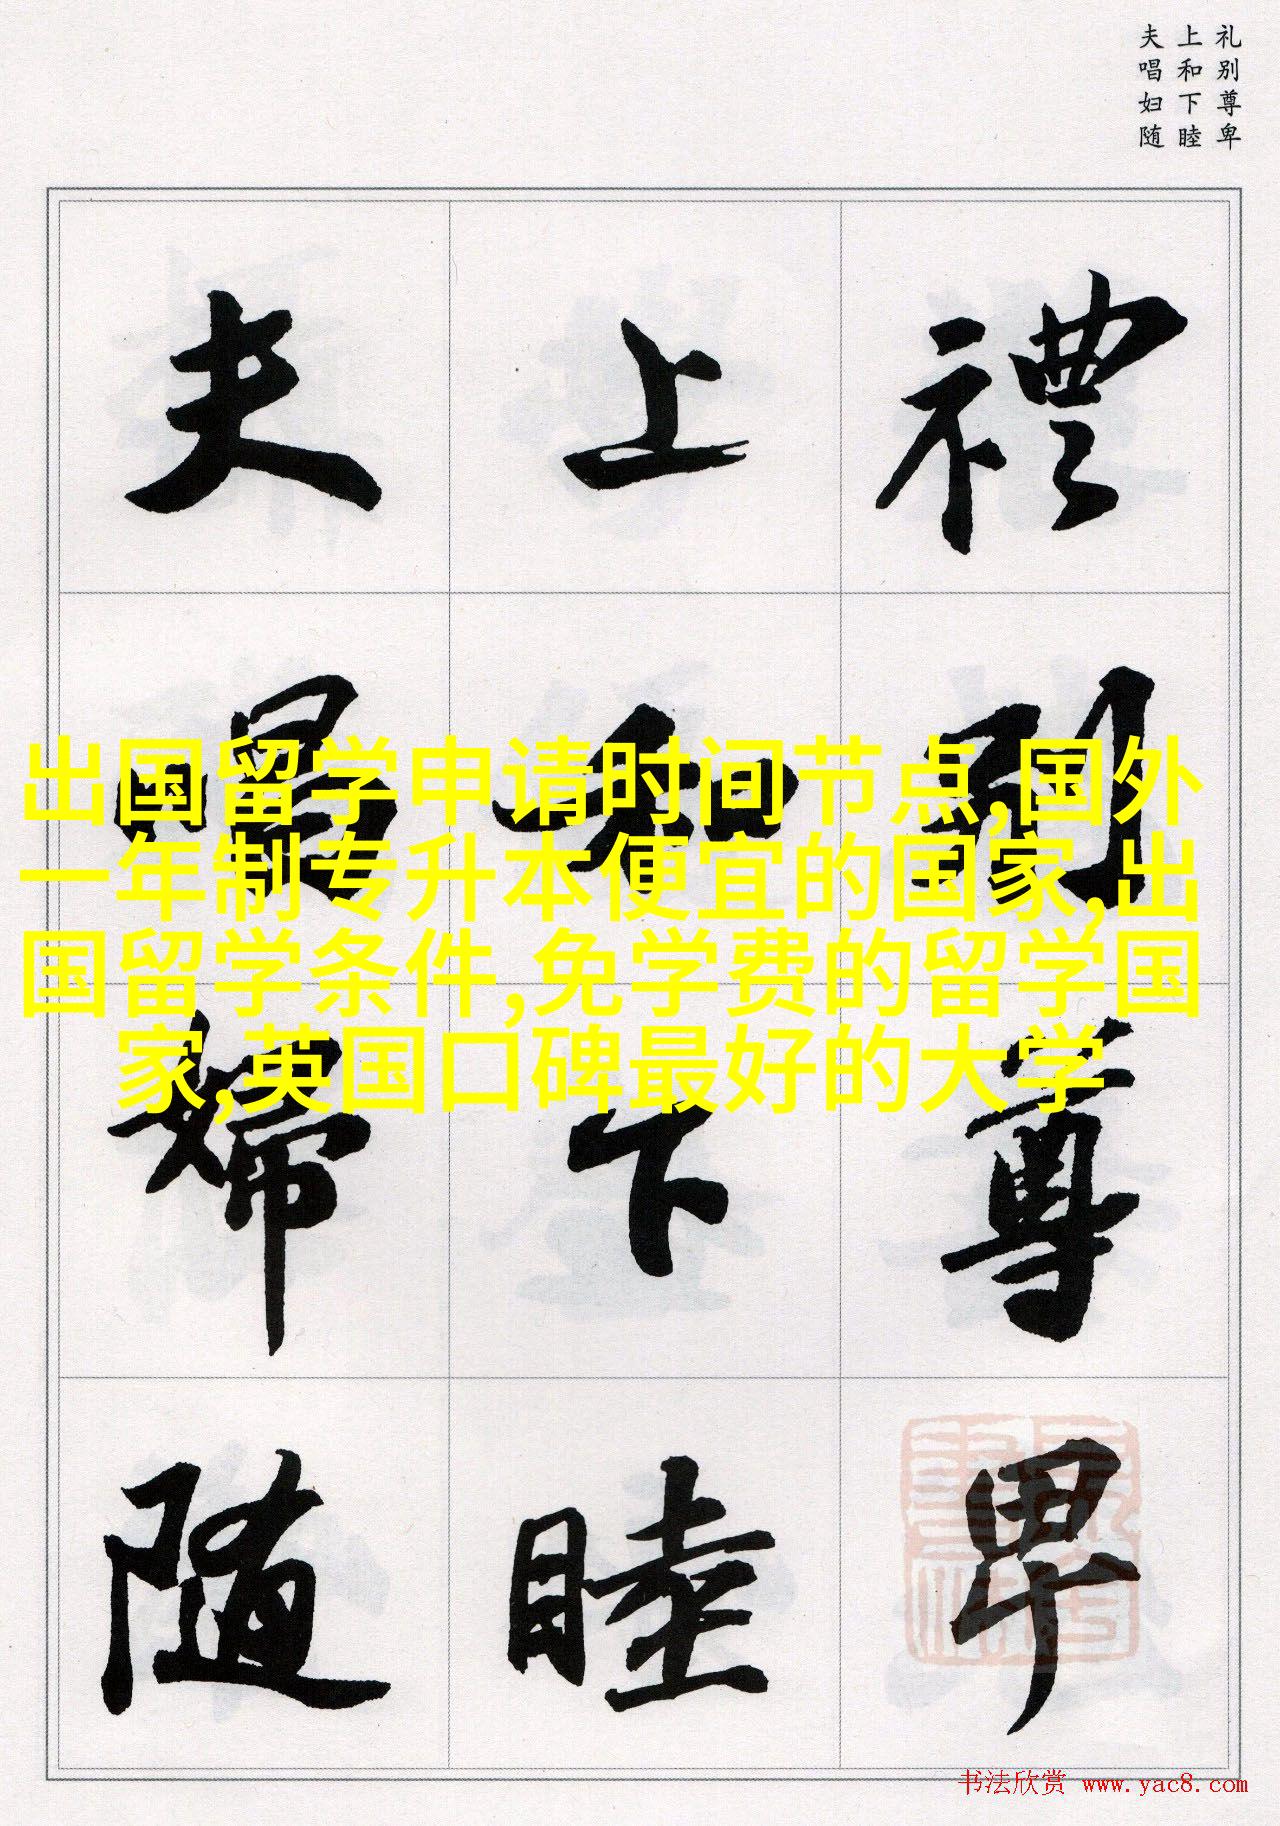 礼别尊卑
上和下睦
夫唱妇随
禮别尊卑
上和下睦
夫唱婦随
出国留学申请时间节点,国外
一年制专升本便宜的国家,出
国留学条件,免学费的留学国
家,英国口碑最好的大学
书法欣赏 www.yac8.com